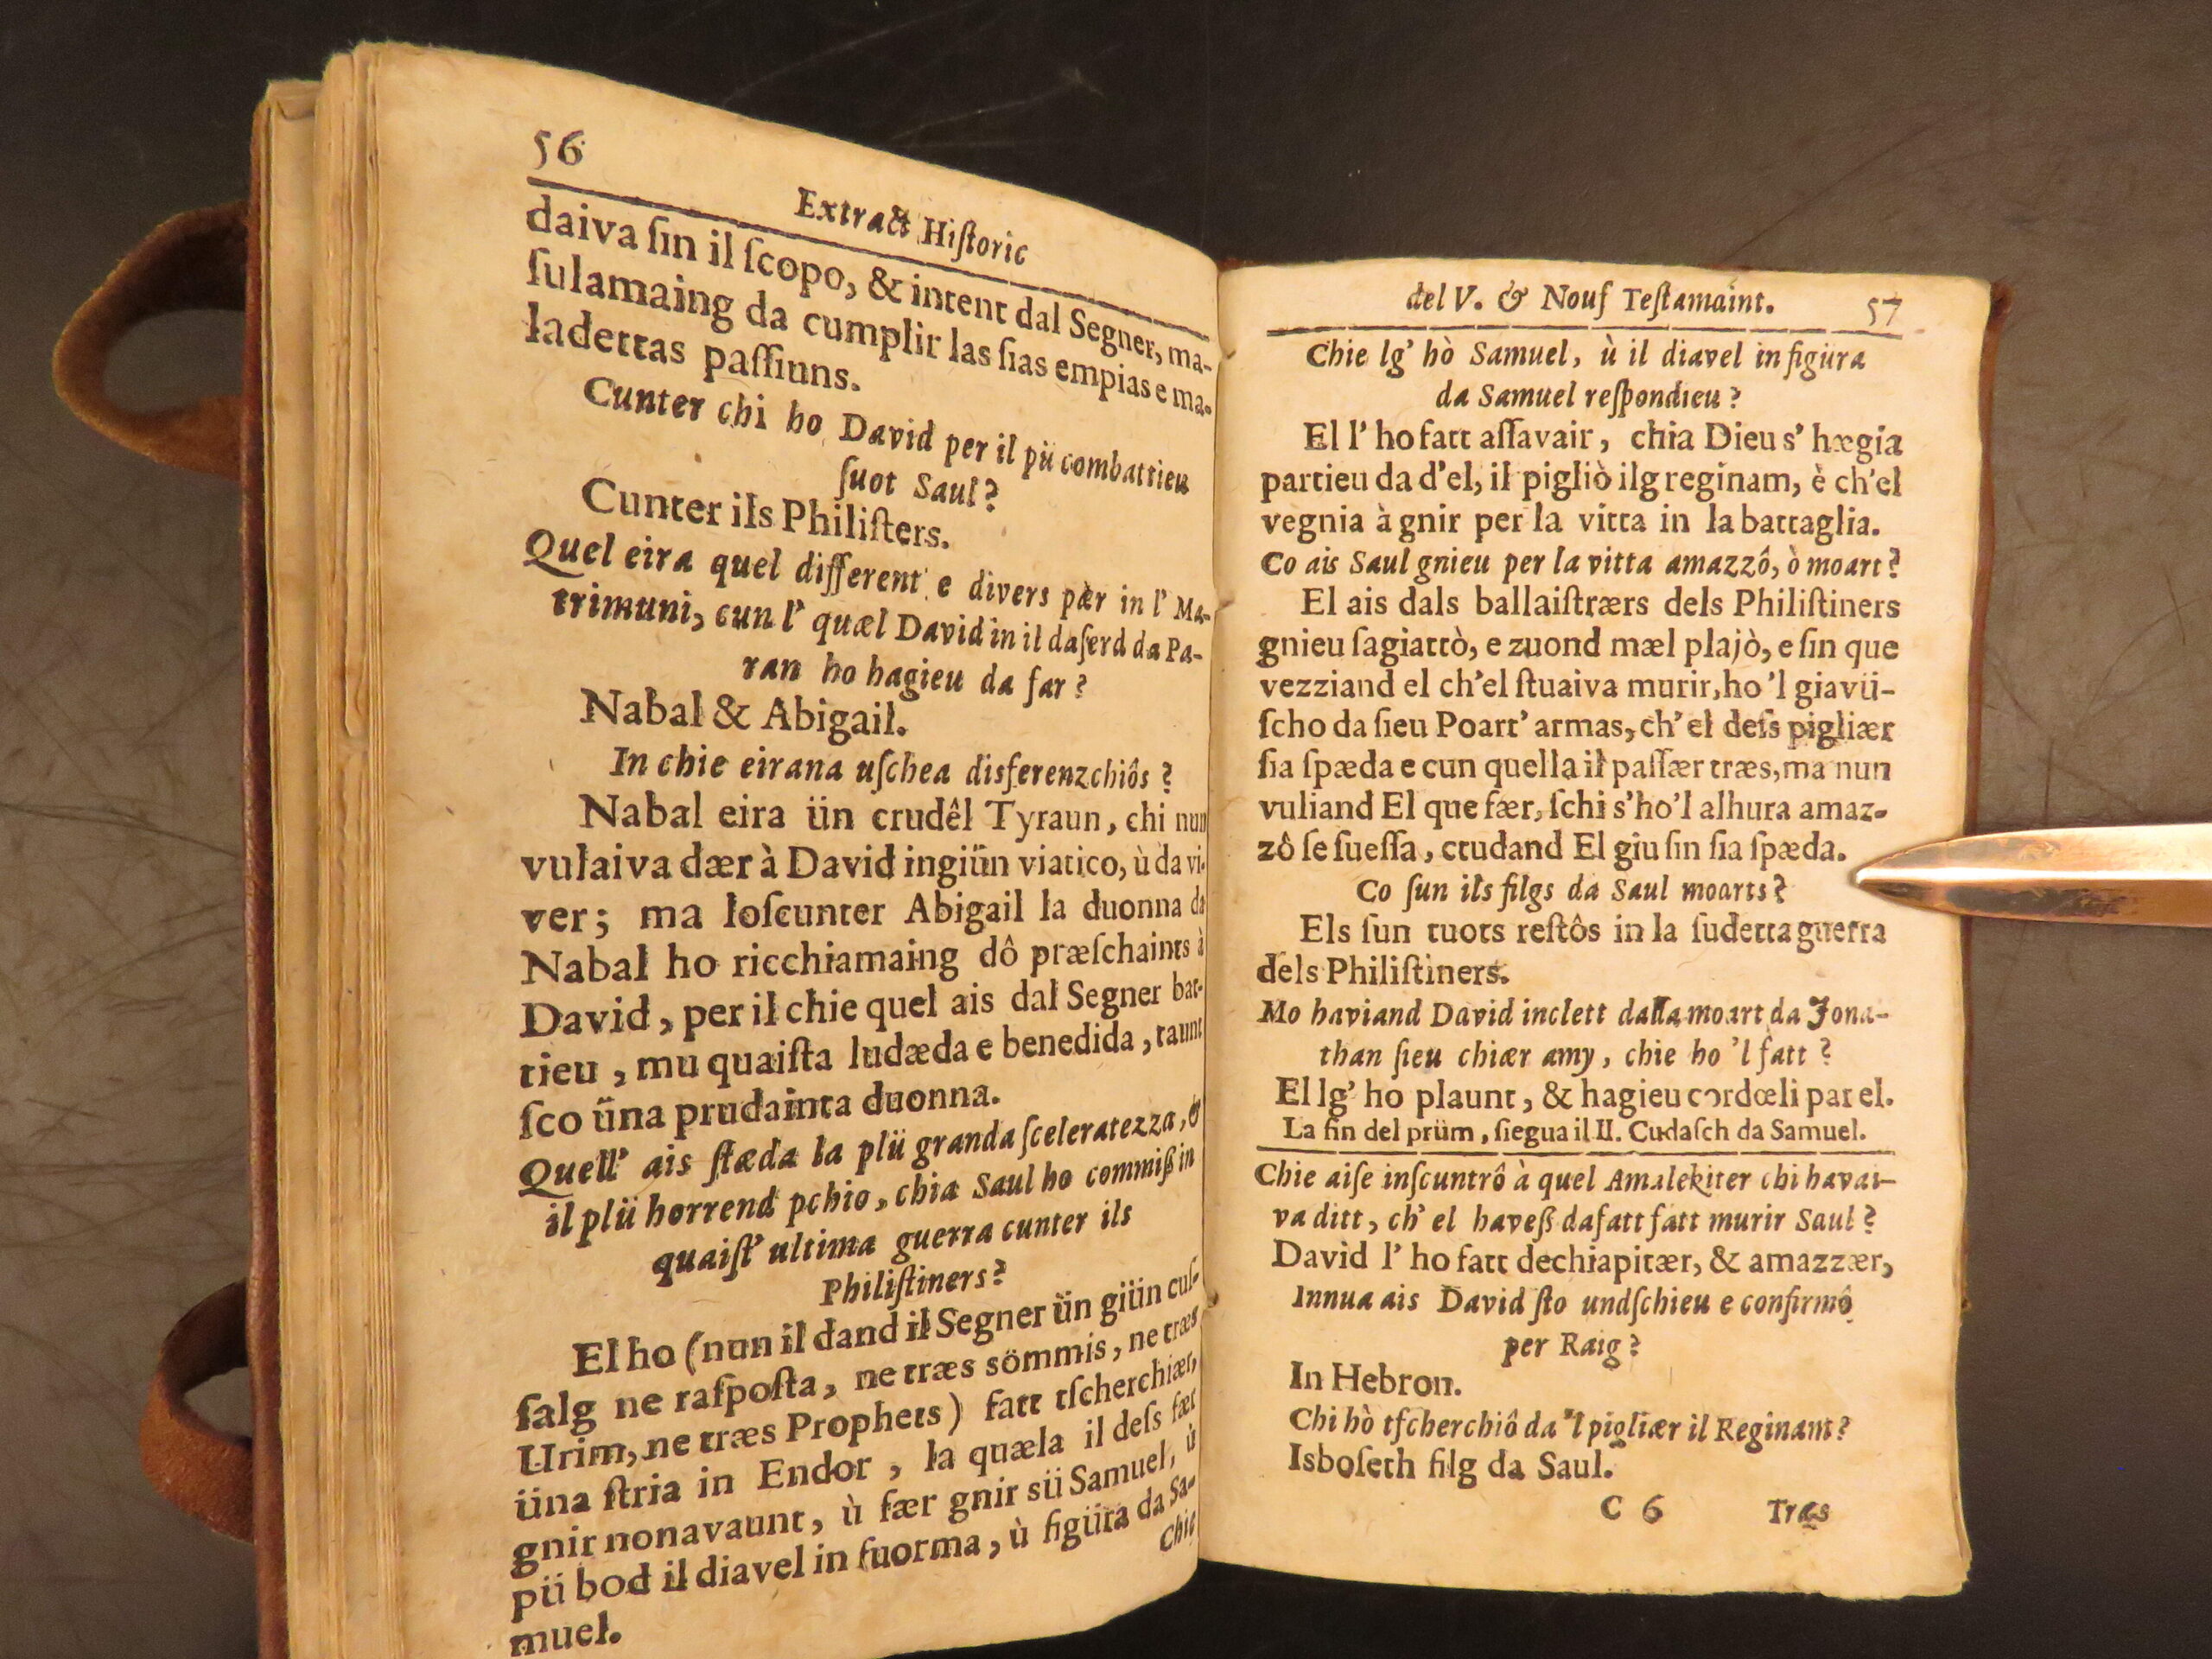 56
Extract Hiſtoric
daiva ſin il ſcopo, & intent dal Segner, ma-
ſulamaing da cumplir las ſias empias e ma-
ladettas paſſiuns.
Cunter chi ho David per il pü combattieu
ſuot Saul?
Cunter ils Philiſters.
Quel eira quel different e divers pær in l' Ma-
trimuni, cun l' quæl David in il daſerd da Pa-
ran ho hagieu da far?
Nabal & Abigail.
In chie eirana uſchea disferenzchiôs?
Nabal eira ün crudêl Tyraun, chi nun
vulaiva dær à David ingiün viatico, ù da vi-
ver; ma loſcunter Abigail la duonna da
Nabal ho ricchiamaing dô præſchaints à
David, per il chie quel ais dal Segner bat-
tieu, mu quaiſta ludæda e benedida, taunt
ſco üna prudainta duonna.
Quell' ais ſtæda la plü granda ſceleratezza, &
il plü horrend pchio, chia Saul ho commiß in
quaiſt' ultima guerra cunter ils
Philiſtiners?
El ho (nun il dand il Segner ün giün cuſ-
ſalg ne raſpoſta, ne træs sömmis, ne træs
Urim, ne træs Prophets) fatt tſcherchiær,
üna ſtria in Endor, la quæla il deſs fær
gnir nonavaunt, ù fær gnir sü Samuel, ù
pü bod il diavel in fuorma, ù figüra da Sa-
muel.
Chie
del V. & Nouf Teſtamaint. 57
Chie lg' hò Samuel, ù il diavel in figüra
da Samuel reſpondieu?
El l' ho fatt aſſavair, chia Dieu s' hægia
partieu da d'el, il pigliò ilg reginam, è ch'el
vegnia à gnir per la vitta in la battaglia.
Co ais Saul gnieu per la vitta amazzô, ò moart?
El ais dals ballaiſtrærs dels Philiſtiners
gnieu ſagiattò, e zuond mæl plajò, e ſin que
vezziand el ch'el ſtuaiva murir, ho 'l giavü-
ſcho da ſieu Poart' armas, ch' el deſs pigliær
ſia ſpæda e cun quella il paſſær træs, ma nun
vuliand El que fær, ſchi s'ho'l alhura amaz-
zô ſe ſueſſa, crudand El giu ſin ſia ſpæda.
Co ſun ils filgs da Saul moarts?
Els ſun tuots reſtôs in la ſudetta guerra
dels Philiſtiners.
Mo haviand David inclett dalla moart da Jona-
than ſieu chiær amy, chie ho 'l fatt?
El lg' ho plaunt, & hagieu cordœli par el.
La fin del prüm, ſiegua il II. Cudaſch da Samuel.
Chie aiſe inſcuntrô à quel Amalekiter chi havai-
va ditt, ch' el haveß dafatt fatt murir Saul?
David l' ho fatt dechiapitær, & amazzær,
Innua ais David ſto undſchieu e confirmô
per Raig?
In Hebron.
Chi hò tſcherchiô da 'l pigliær il Reginam?
Isboſeth filg da Saul.
C 6 Træs